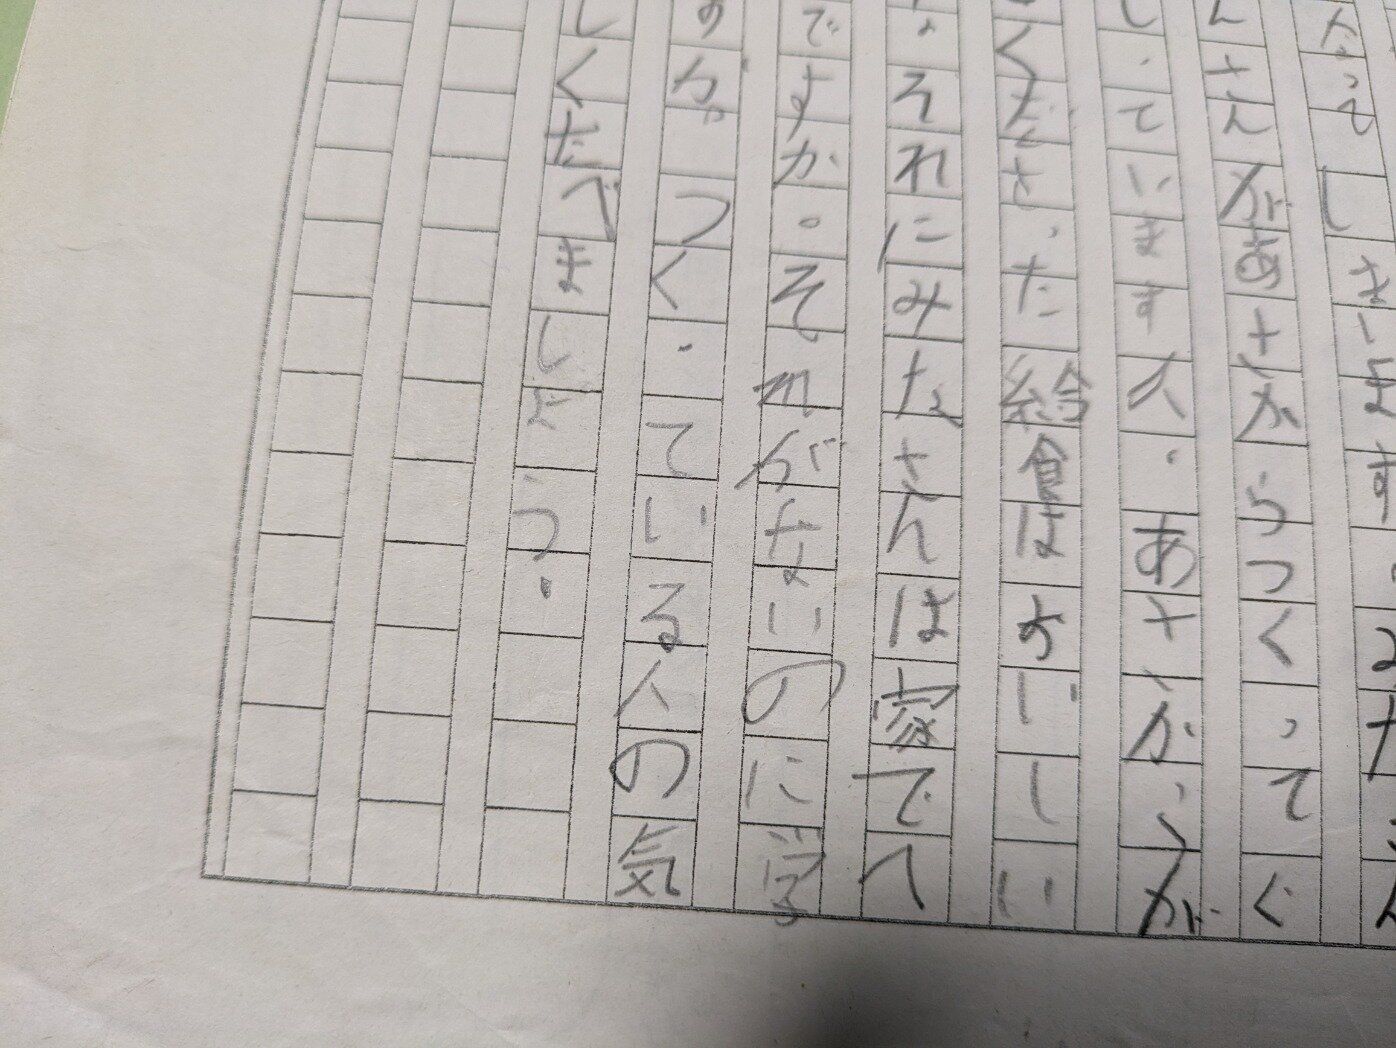 たってしさいます
んさんがあさからつくってぐ
し。ています人。あさからが
くださった給食はおいしい
。それにみなさんは家でへ
ですか。それがないのに学
すか つく。ている人の気
しくたべましょう。